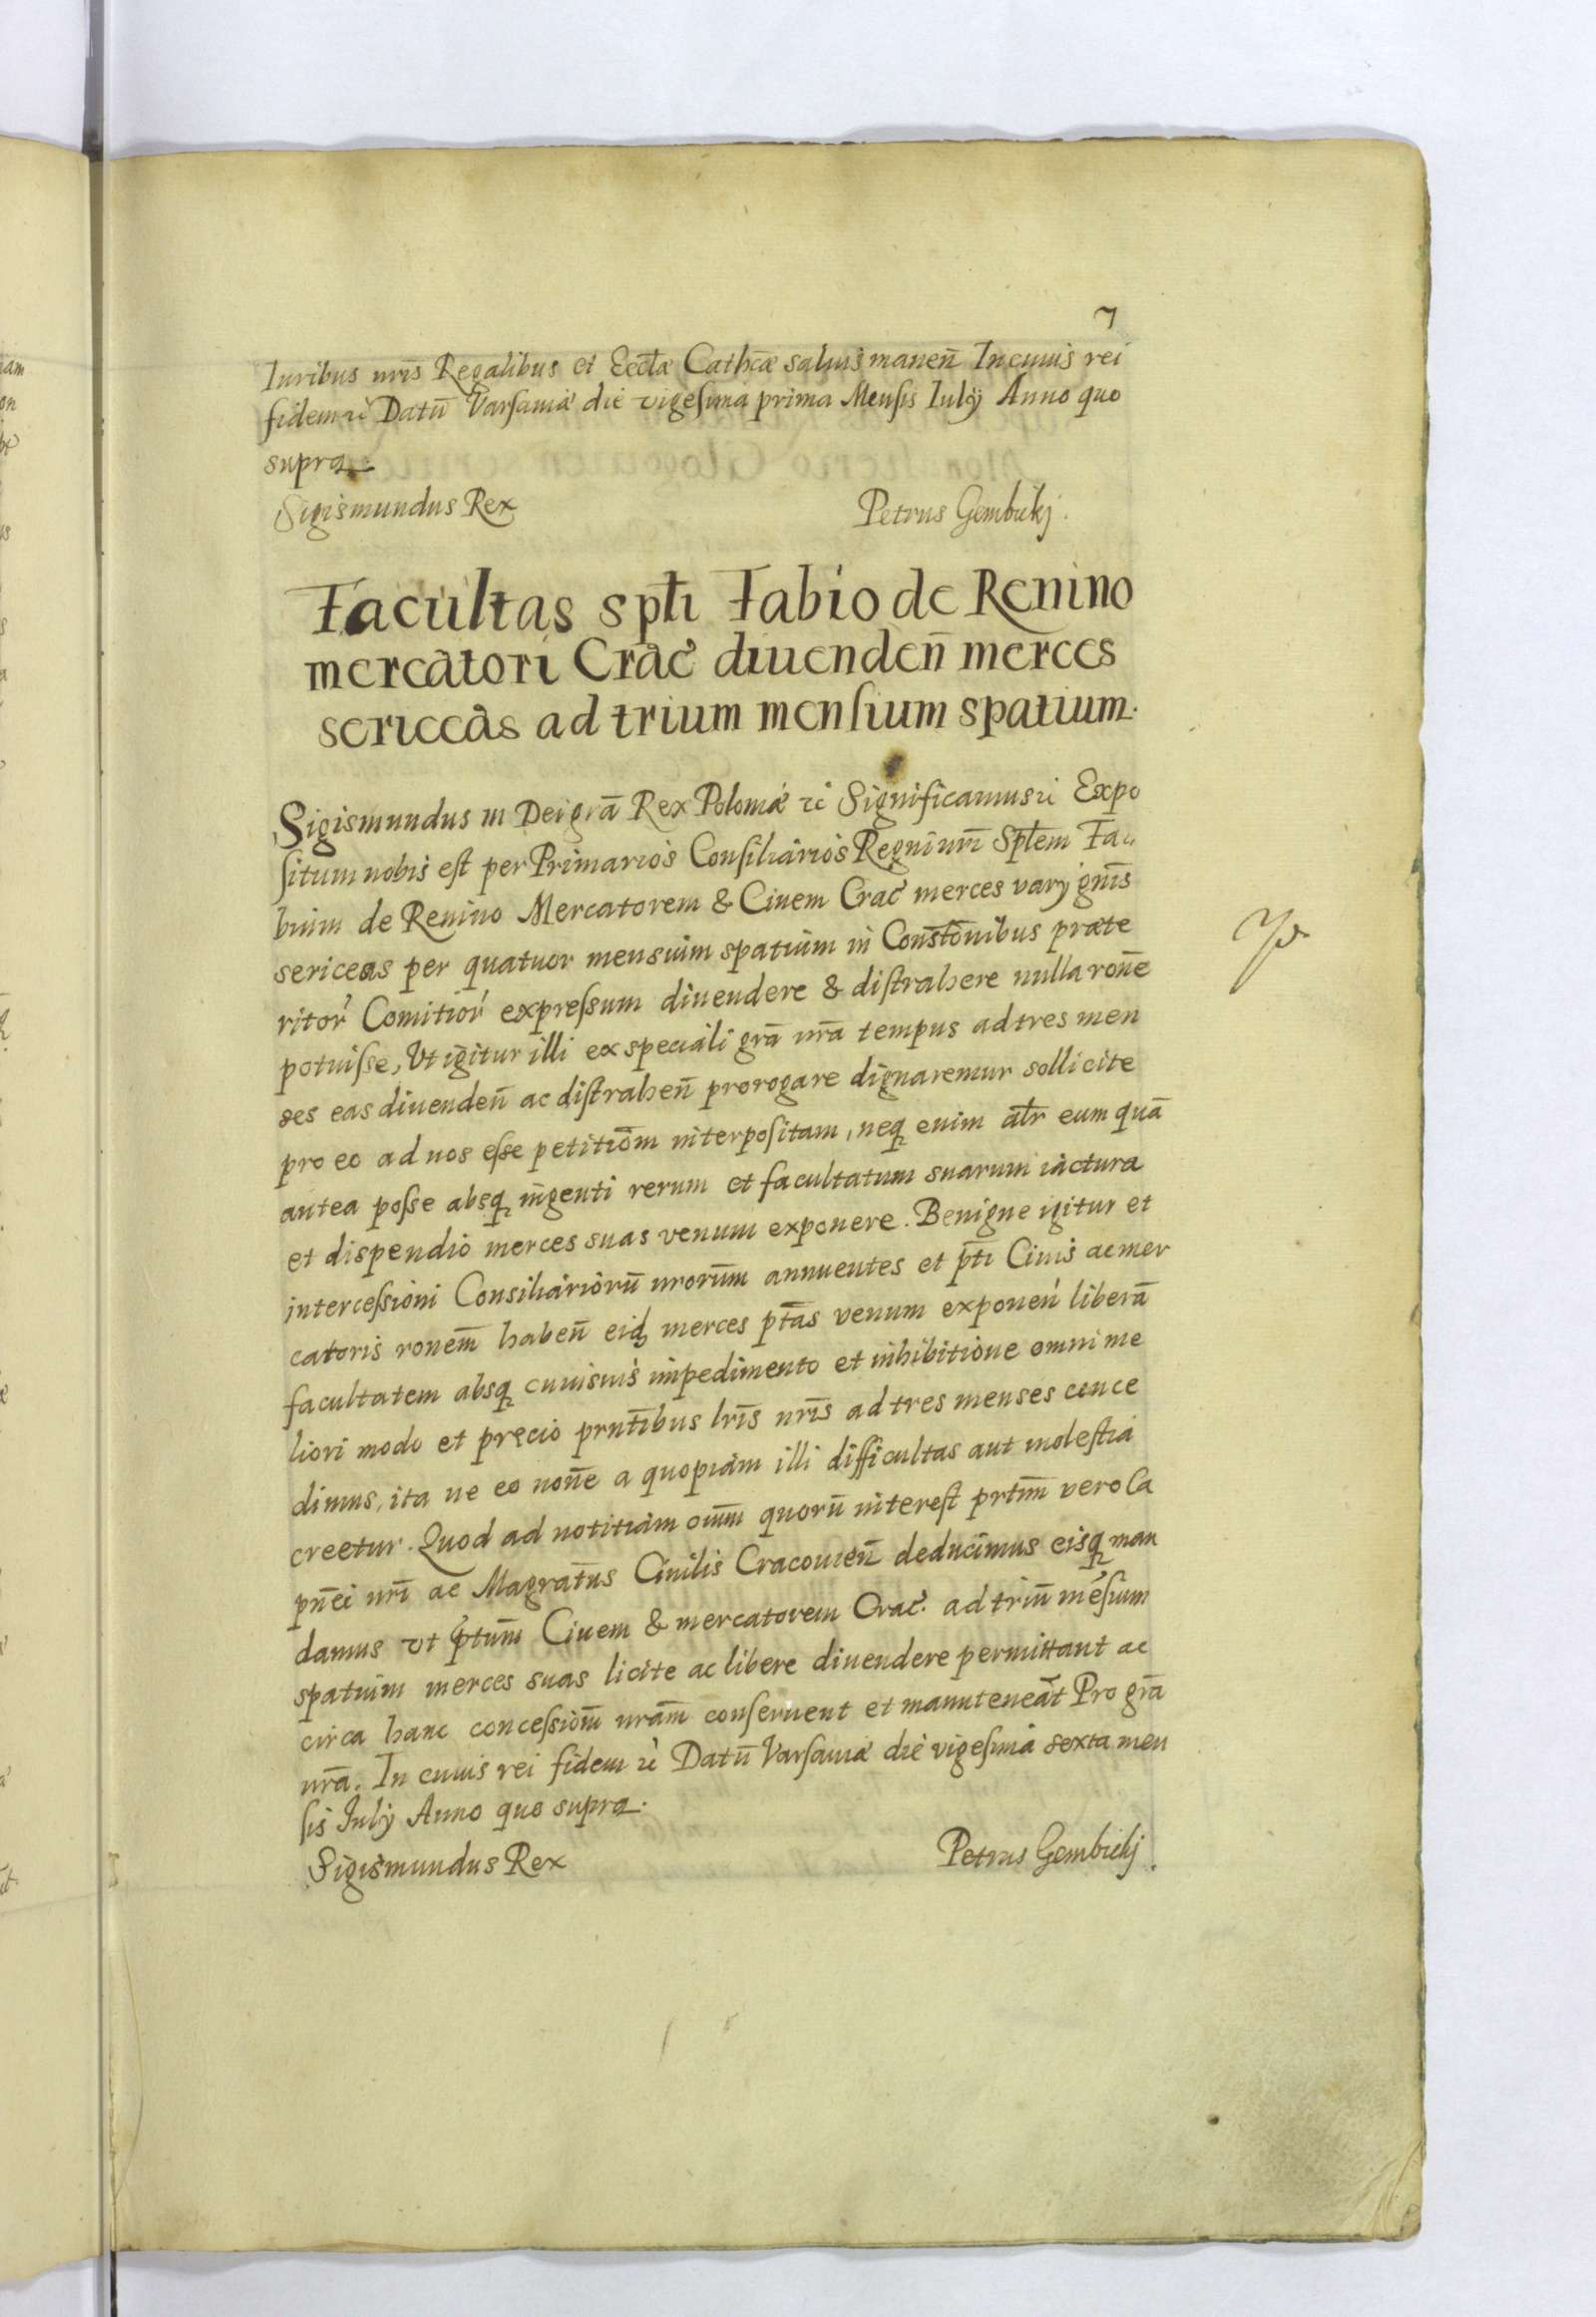 7
Iuribus nris̄ Regalibus et Eccl̄æ Cath̄cæ saluis manen̄ In cuius rei
fidem ꝛc̀ Datū Varsauiæ die vigesima prima Mensis Iulÿ Anno quo
supra.
Sigismundus Rex Petrus Gembickj.
Facultas spt̄i Fabio de Renino
mercatori Crac̀ diuenden̄ merces
sericeas ad trium mensium spatium.
Sigismundus III Dei grā Rex Poloniæ ꝛc̀ Significamus ꝛc̀ Expo
situm nobis est per Primarios Consiliarios Regni nrī Spt̄em Fa
bium de Renino Mercatorem & Ciuem Crac̀ merces varÿ gnīs
sericeas per quatuor mensium spatium in Constōnibus præte
ritor̀ Comitior̀ expressum diuendere & distrahere nulla rōne
potuisse, Vt igitur illi ex speciali grā nrā tempus ad tres men
ses eas diuenden̄ ac distrahen̄ prorogare dignaremur sollicite
pro eo ad nos esse petitiōm interpositam, neqꝫ enim alr̄ eum quā
antea posse absqꝫ ingenti rerum et facultatum suarum iactura
et dispendio merces suas venum exponere. Benigne igitur et
intercessioni Consiliariorū nrorūm annuentes et pt̄i Ciuis ac mer
catoris ronem̄ haben̄ eidꝫ merces pt̄as venum exponen̄ liberā
facultatem absqꝫ cuiusuis impedimento et inhibitione omni me
liori modo et precio prnt̄ibus lrīs nrīs ad tres menses conce
dimus, ita ne eo nōne a quopiam illi difficultas aut molestia
creetur. Quod ad notitiam om̄m quorū interest prt̄im vero Ca
pn̄ei nrī ac Magrat̄us Ciuilis Cracouien̄ deducimus eisqꝫ man
damus vt pt̄um Ciuem & mercatorem Crac̀. ad triū mēsium
spatium merces suas licite ac libere diuendere permittant ac
circa hanc concessiōm nrām conseruent et manuteneāt Pro grā
nrā. In cuius rei fidem ꝛc̀ Datū Varsauiæ die vigesima sexta men
sis Iulÿ Anno quo supra.
Sigismundus Rex Petrus Gembickj.